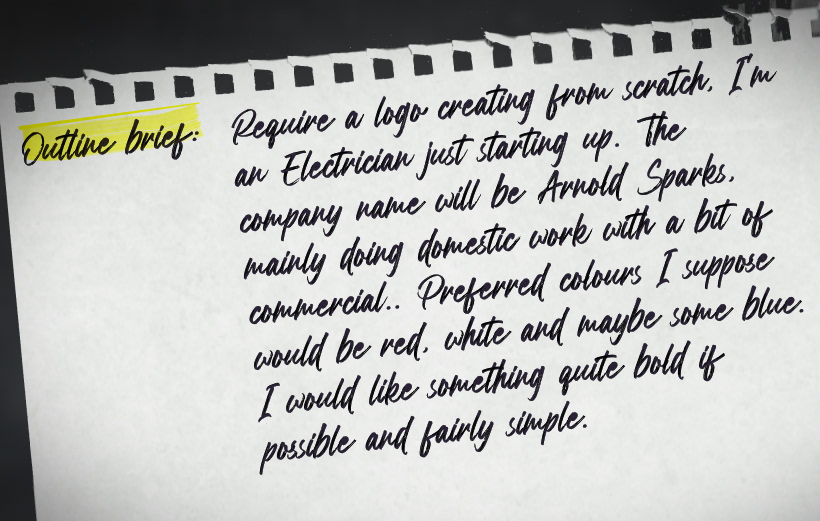 Outline brief:
Require a logo creating from scratch, I'm
an Electrician just starting up. The
company name will be Arnold Sparks,
mainly doing domestic work with a bit of
commercial.. Preferred colours I suppose
would be red, white and maybe some blue.
I would like something quite bold if
possible and fairly simple.